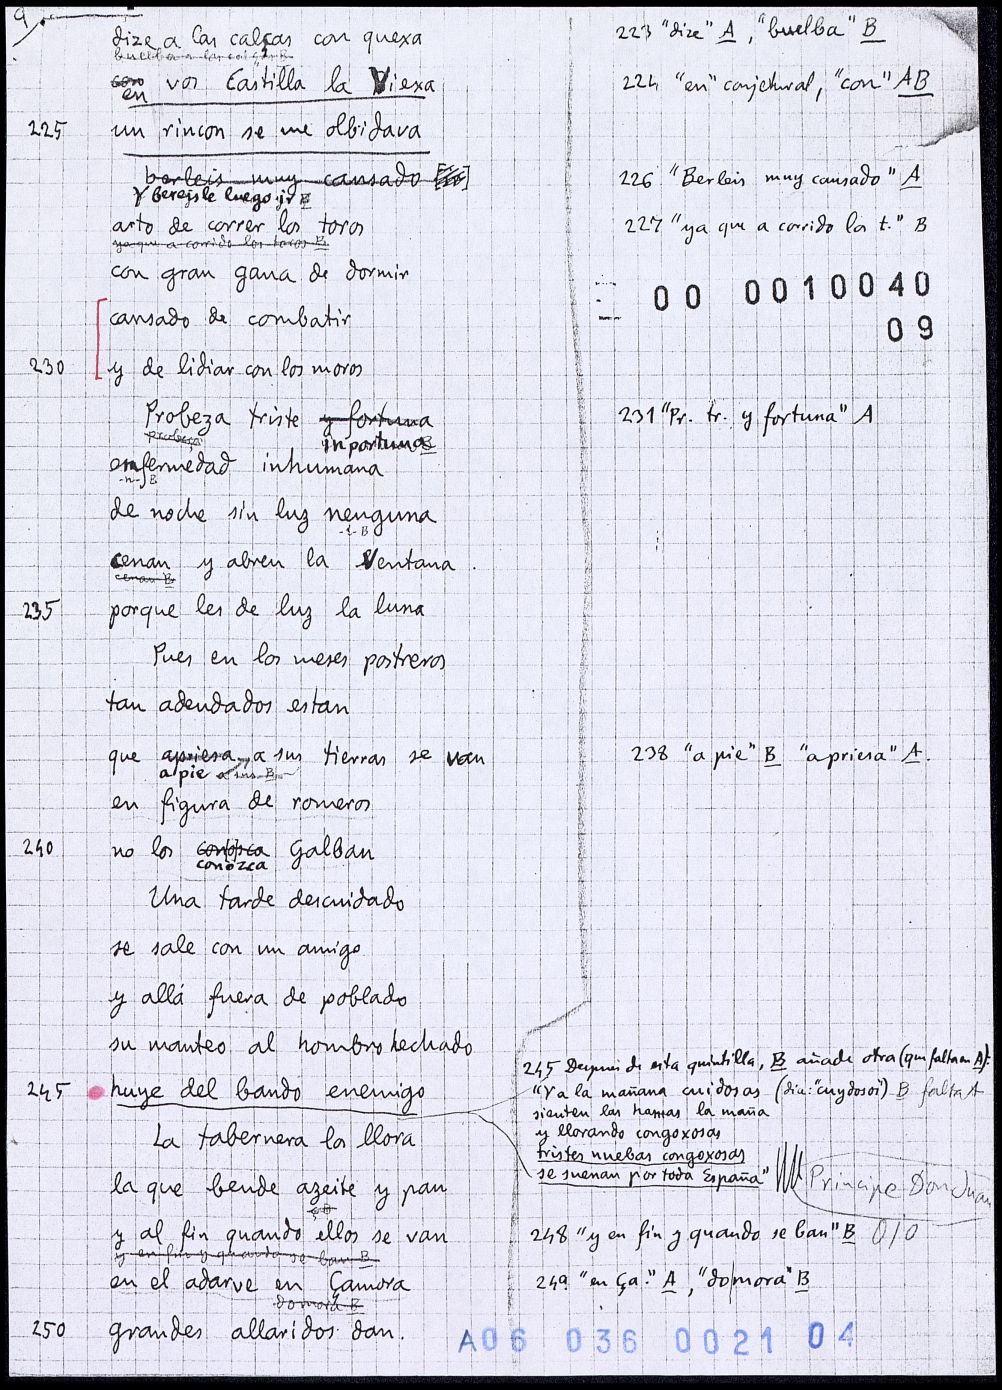 9
dize a las calças con quexa
buelba a las calças B
con
en vos Castilla la Viexa
225 un rincon se me olbidava
berleis muy cansado
y bereisle luego ir B
arto de correr los toros
ya que a corrido los toros B
con gran gana de dormir
cansado de combatir
230 y de lidiar con los moros
Probeza triste y fortuna
probeça inportuna B
enfermedad inhumana
-n- B
de noche sin luz nenguna
-i- B
cenan y abren la Ventana.
cenan B
235 porque les de luz la luna
Pues en los meses postreros
tan adeudados estan
que apriesa a sus tierras se van
a pie a sus B
en figura de romeros
240 no los conosca Galban
conozca
Una tarde descuidado
se sale con un amigo
y allá fuera de poblado
su manteo al hombro hechado
245 huye del bando enemigo
La tabernera los llora
la que bende azeite y pan
y al fin quando ellos se van
y en fin y quando se ban B
en el adarve en Çamora
domora B
250 grandes allaridos dan.
223 "dize" A, "buelba" B
224 "en" conjetural, "con" AB
226 "Berleis muy cansado" A
227 "ya que a corrido los t." B
00 0010040
09
231 "Pr. tr. y fortuna" A
238 "a pie" B "apriesa" A.
245 Despues de esta quintilla, B añade otra (que falta en A):
"Ya la mañana cuidosas (dia: "cuydosos") B falta A
sienten las hamas la maña
y llorando congoxosas
tristes nuebas congoxosas
se suenan por toda España"
Principe Don Juan
248 "y en fin y quando se ban" B O/O
249 "en Ça." A, "domora" B
A06 036 0021 04